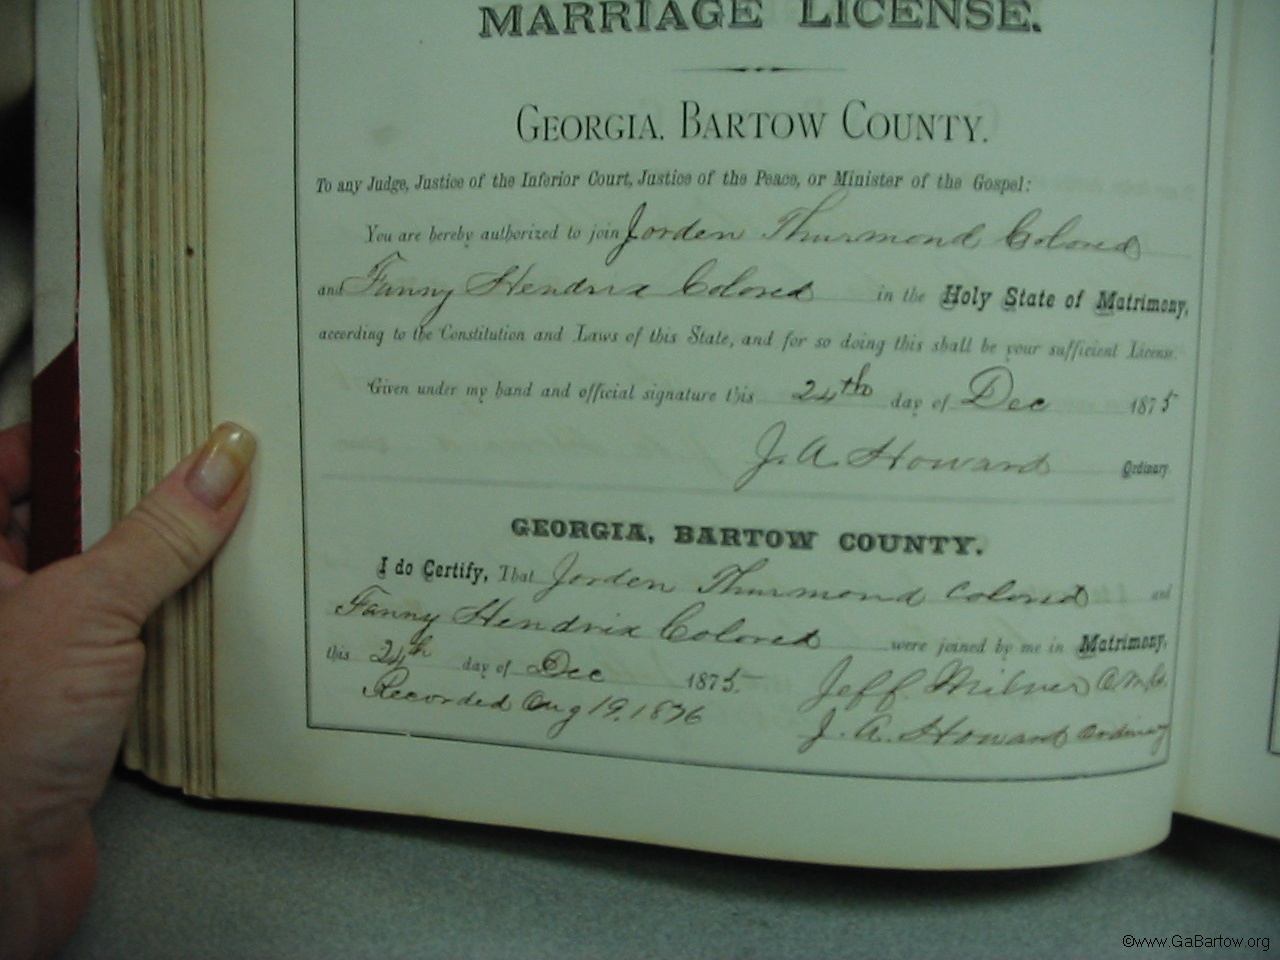 MARRIAGE LICENSE.
GEORGIA, BARTOW COUNTY.
To any Judge, Justice of the Inferior Court, Justice of the Peace, or Minister of the Gospel:
You are hereby authorized to join Jorden Thurmond Colored
and Fanny Hendrix Colored in the Holy State of Matrimony,
according to the Constitution and Laws of this State, and for so doing this shall be your sufficient License.
Given under my hand and official signature this 24th day of Dec 1875
J. A. Howard Ordinary
GEORGIA, BARTOW COUNTY.
I do Certify, That Jorden Thurmond Colored and
Fanny Hendrix Colored were joined by me in Matrimony,
this 24th day of Dec 1875. Jeff Milner
Recorded Aug 19, 1876 J. A. Howard Ordinary
©www.GaBartow.org